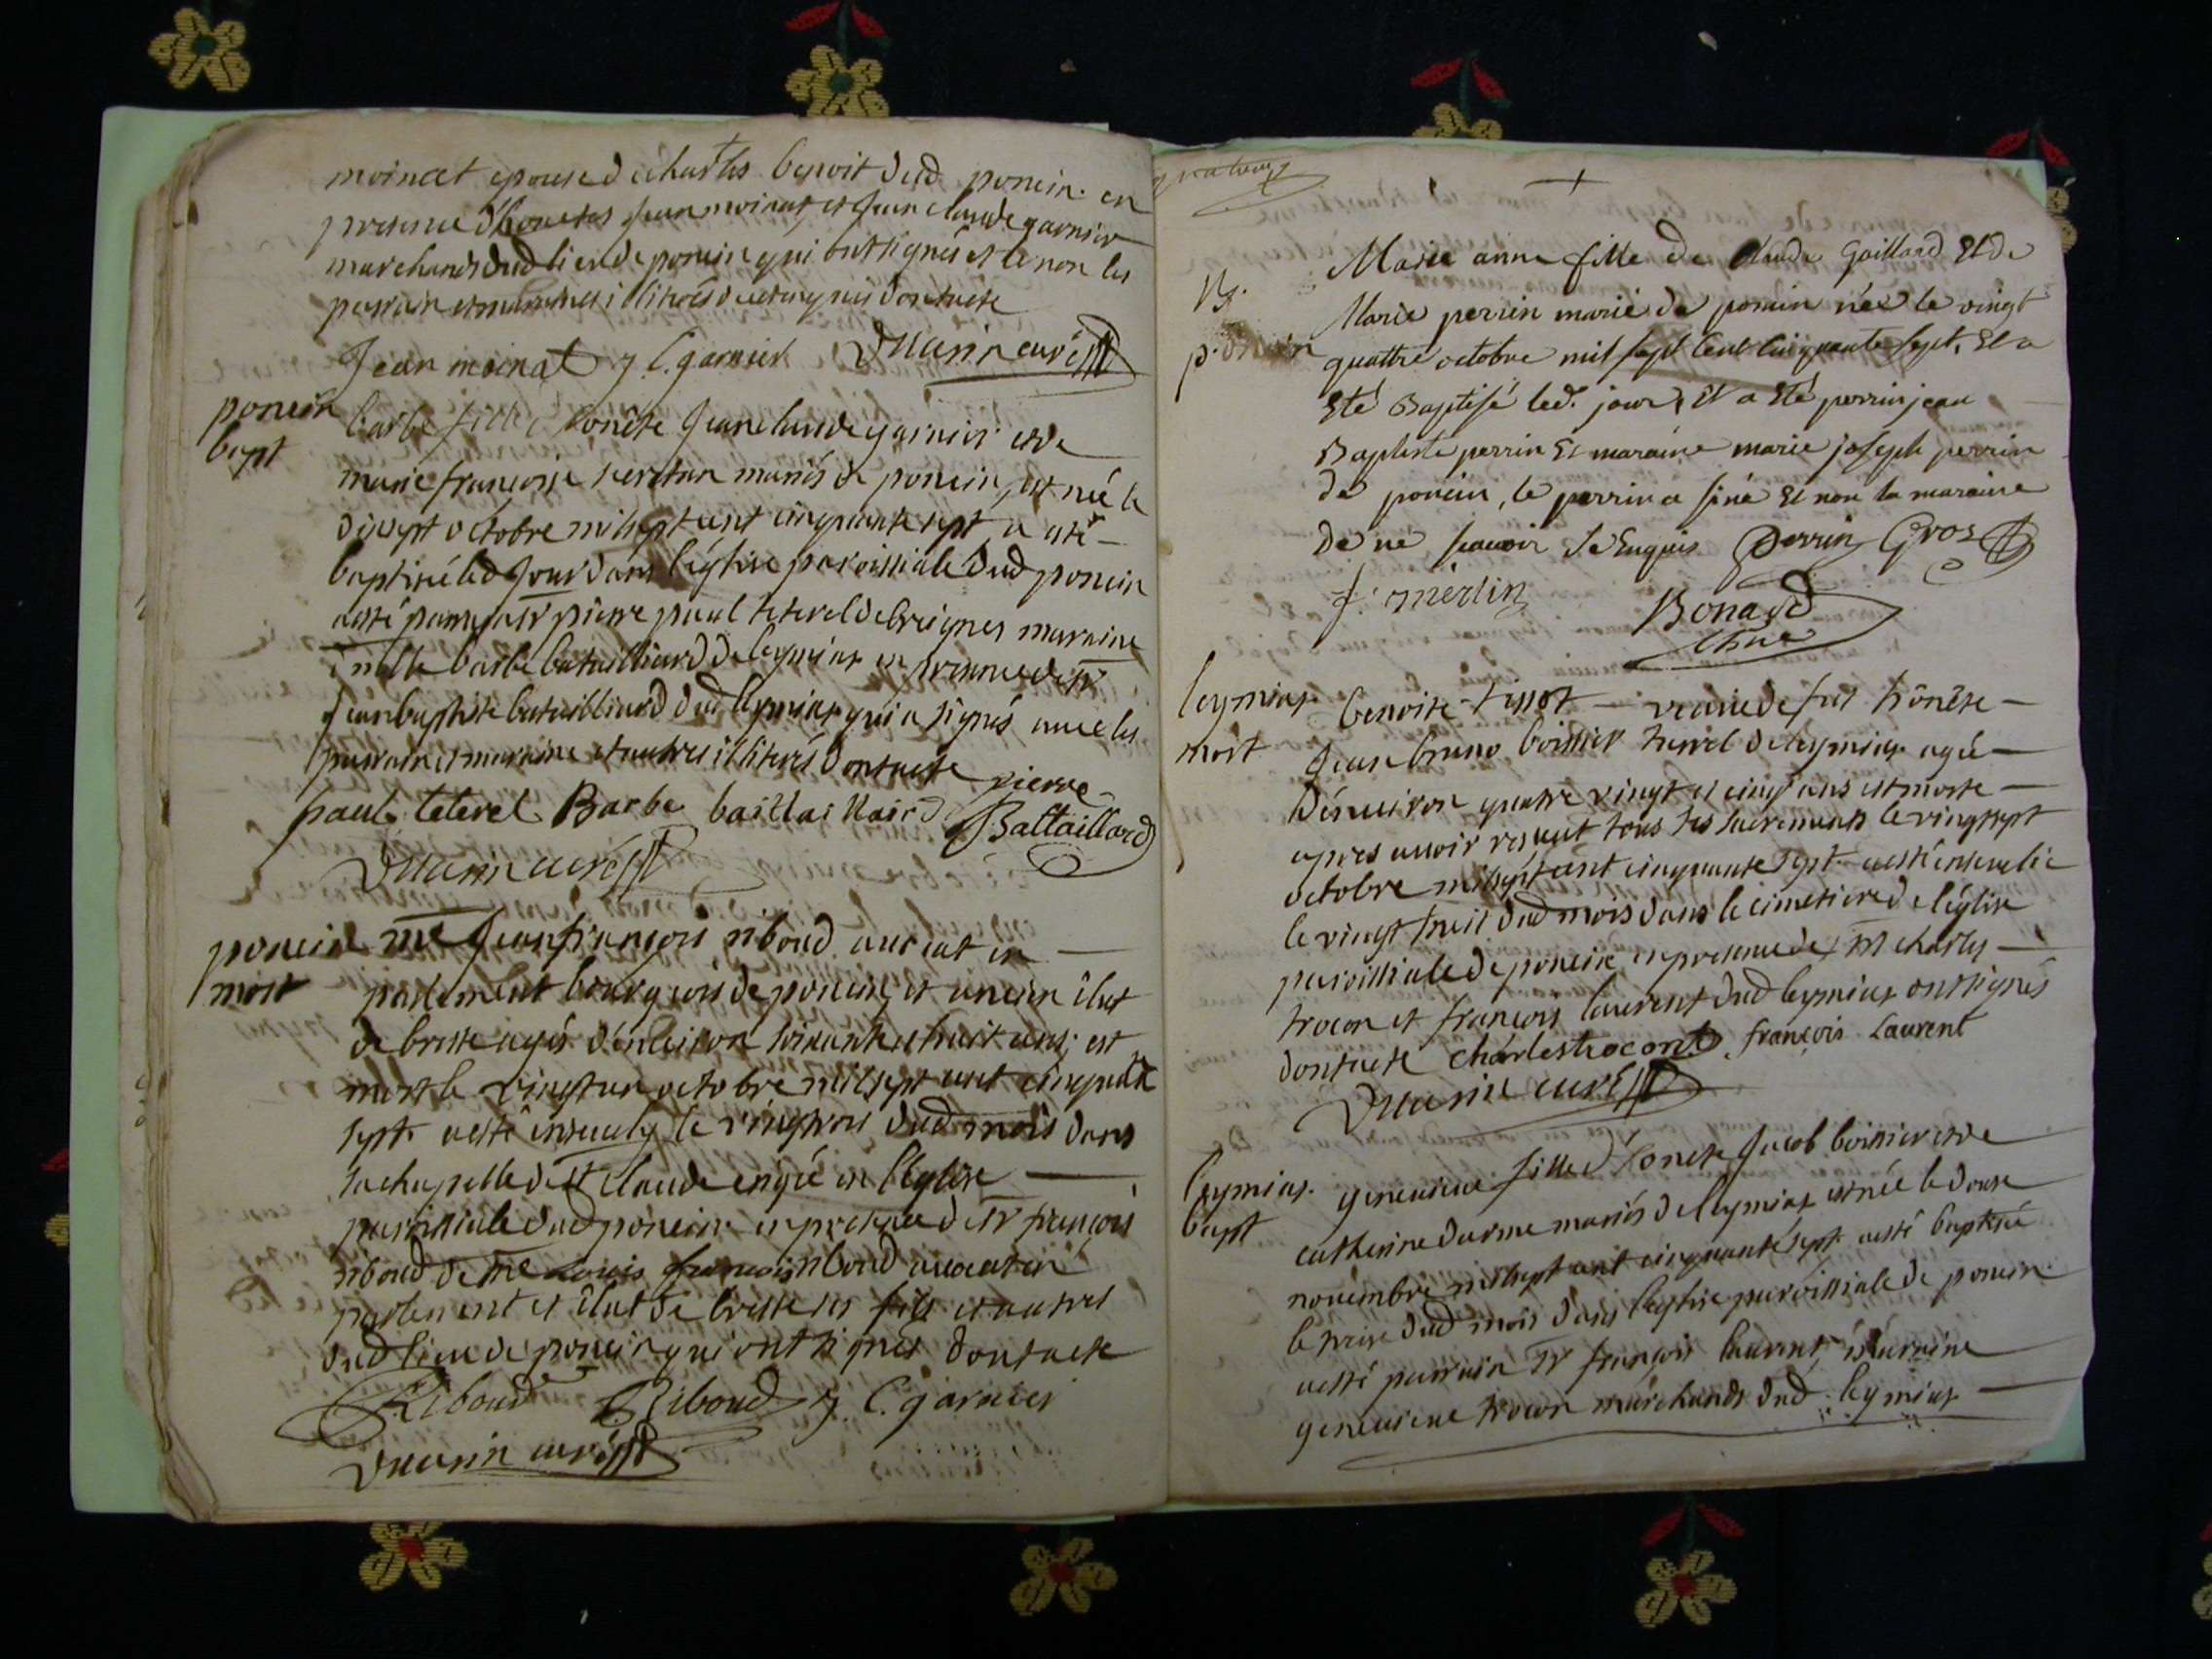 moinat epouse de charles benoit dud poncin en
presence d'honetes jean moinat et jean claude garnier
marchands dud lieu de poncin qui ont signés et le non les
parrain et marraine illiterés de ce enquis dont acte
Jean moinat j C. garnier curé
poncin
bapt
barbe fille d'honête jean claude garnier et de
marie francoise mariés de poncin, est née le
dixsept octobre milsept cent cinquante sept a esté
baptisé led jour dans l'église paroissiale dud poncin
a esté parrain sr pierre paul teterel de marraine
dnelle barbe bataillard de leymiat en presence de sr
jean baptiste bataillard dud leymiat qui a signés avec les
parrain et maraine et autres illiterés dont acte pierre
paul teterel Barbe baillaillaird Battaillard
curé
poncin
mort
me jean françois riboud avocat en
parlement bourgeois de poncin et ancien élut
de bresse agés d'environ soixante et huit ans, est
mort le vingt un octobre mil sept cent cinquante
sept a esté le vingtrois dud mois dans
sa chapelle de st claude en l'eglise
paroissiale dud poncin en presence de sr françois
riboud de me Louis françois riboud avocat en
parlement et élut de bresse ses fils et autres
dud lieu de poncin qui ont signés dont acte
Riboud Riboud j. C. garnier
curé
B.
poncin
Marie anne fille de Claude Gaillard Et de
Marie perrin marié de poncin née le vingt
quattre octobre mil sept Cent Cinquante sept, Et a
Eté Baptisé led. jour, Et a Eté perrin jean
Baptiste perrin Et maraine marie joseph perrin
de poncin, le perrin a siné Et non la maraine
de ne scavoir de Enquis Perrin Gros
f: merlin Bonard
leymiat
mort
benoite tissot veuve de fut hônête
jean bruno boissier de leymiat agée
d'environ quatre vingt et cinq ans est morte
apres avoir reçeut tous les sacrements le vingt sept
octobre milsept cent cinquante sept a esté ensevelie
le vingt huit dud mois dans le cimetiere de l'église
paroissiale de poncin en presence de sr charles
trocon et françois laurent dud leymiat ont signés
dont acte charles trocont françois Laurent
curé
leymiat
bapt
genevieve fille d'honete jacob boissier et de
catherine darme mariés de leymiat est née le douse
novembre mil sept cent cinquante sept a esté baptisée
le treise dud mois dans l'eglise paroissiale de poncin
a esté parrain sr françois laurent et maraine
genevieve trocon marchands dud leymiat